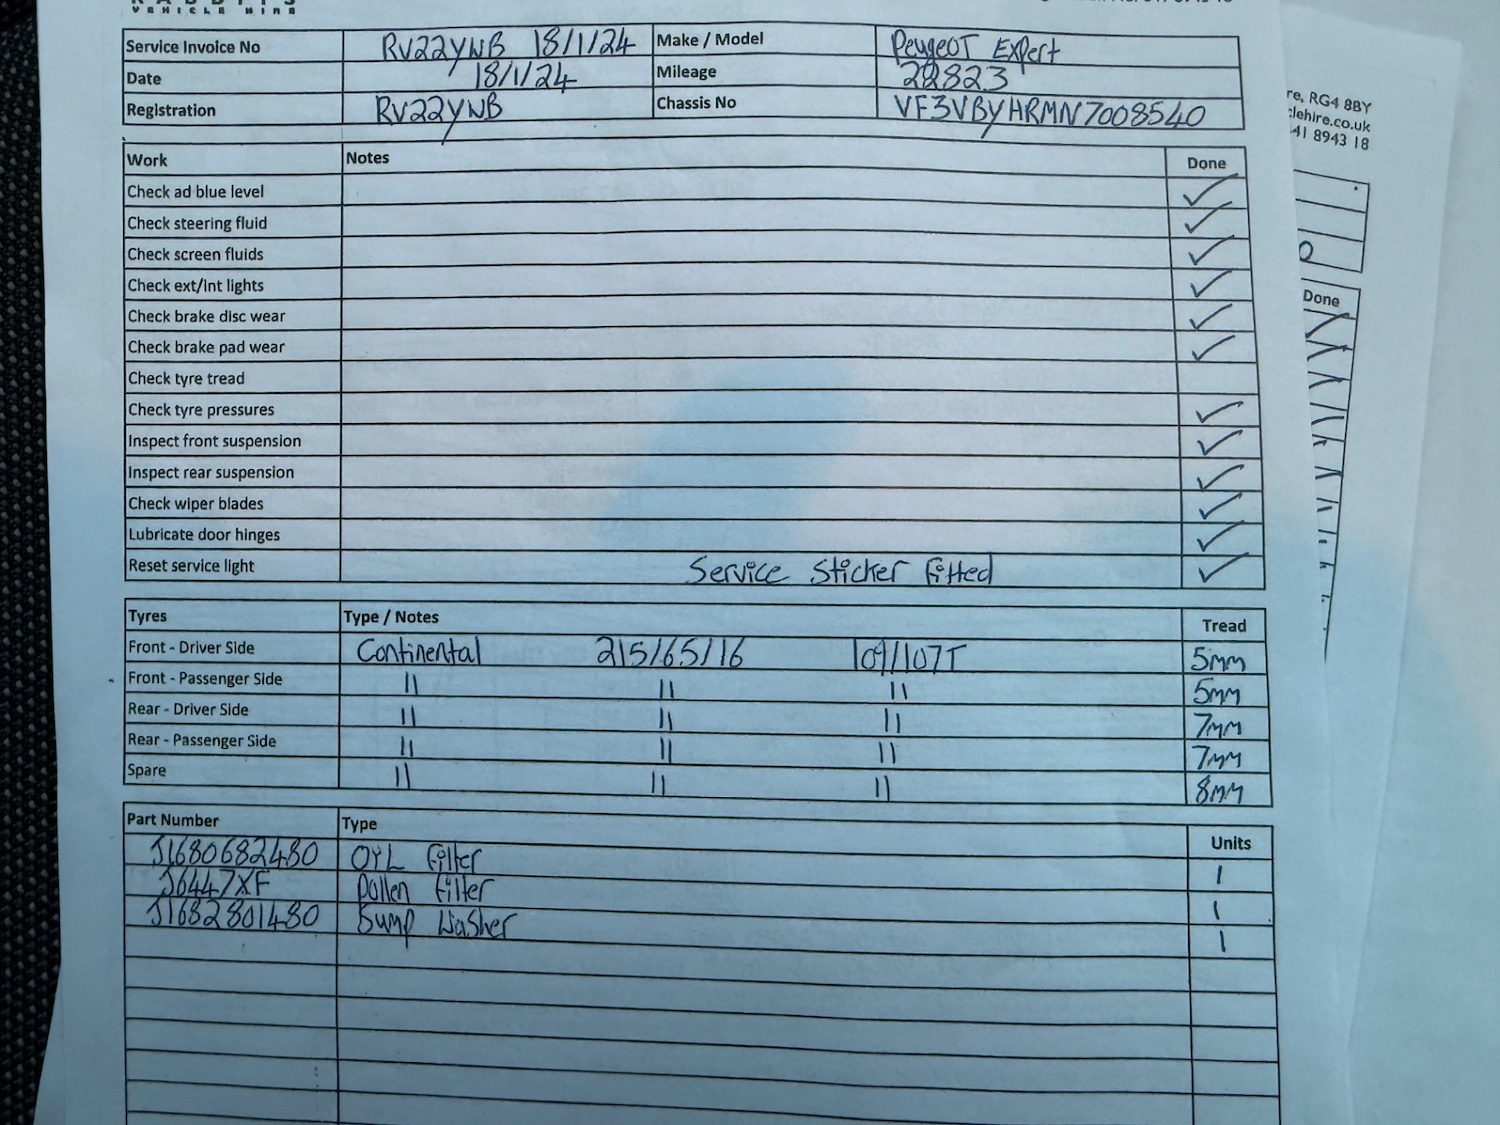 VEHICLE HIRE
Service Invoice No RV22YWB 18/1/24 Make / Model Peugeot Expert
Date 18/1/24 Mileage 22823
Registration RV22YWB Chassis No VF3VBYHRMN7008540
Work Notes Done
Check ad blue level ✓
Check steering fluid ✓
Check screen fluids ✓
Check ext/int lights ✓
Check brake disc wear ✓
Check brake pad wear ✓
Check tyre tread
Check tyre pressures ✓
Inspect front suspension ✓
Inspect rear suspension ✓
Check wiper blades ✓
Lubricate door hinges ✓
Reset service light Service Sticker fitted ✓
Tyres Type / Notes Tread
Front - Driver Side Continental 215/65/16 109/107T 5mm
Front - Passenger Side 11 11 11 5mm
Rear - Driver Side 11 11 11 7mm
Rear - Passenger Side 11 11 11 7mm
Spare 11 11 11 8mm
Part Number Type Units
J1680682480 OYL filter 1
J6447XF Pollen filter 1
J1682801480 Sump Washer 1
re, RG4 8BY
lehire.co.uk
41 8943 18
Done